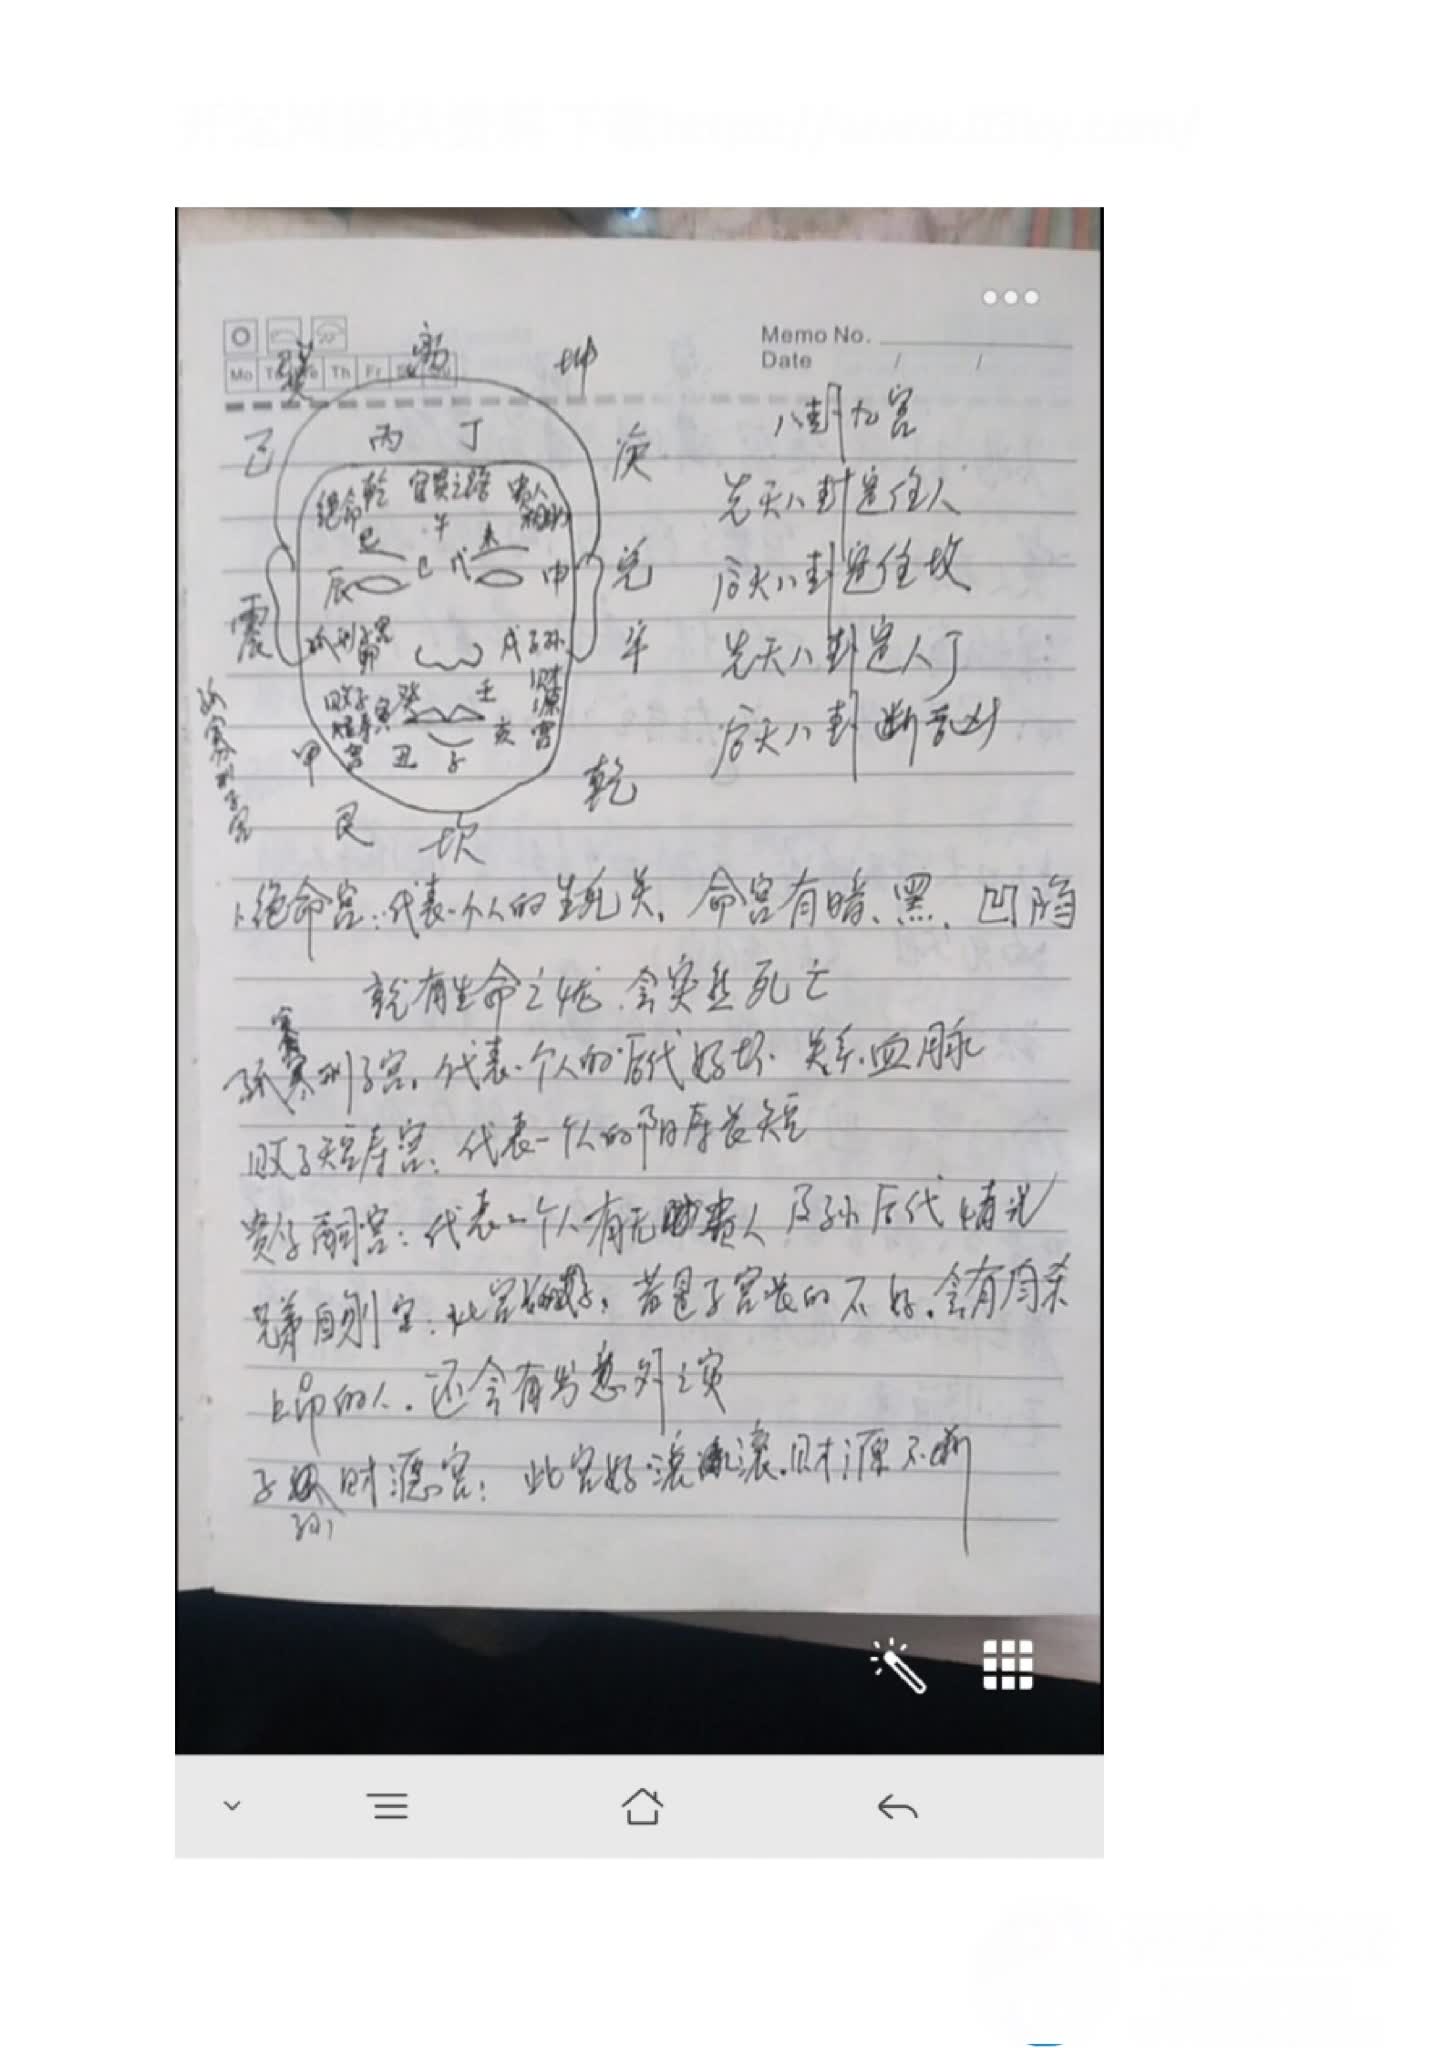 Memo No.
Date / /
Mo Th Fr
巽 离 坤
八卦九宫
丙 丁
先天八卦定住人
绝命 乾 官贵之路 贵人相助
巳 午 未
后天八卦定住坟
辰 己 戊 申
兑
震
先天八卦定人丁
戌 子孙财源宫
后天八卦断吉凶
败子短寿宫 寅 癸 壬
甲 丑 子 亥
乾
孤寡刑子宫
艮 坎
1.绝命宫:代表一个人的生死关,命宫有暗、黑、凹陷
就有生命之忧.会突然死亡
孤寡刑子宫,代表一个人的后代好坏.关系血脉
败子短寿宫:代表一个人的阳寿长短
贵子嗣宫:代表一个人有无贵人及子孙后代情况
兄弟自刎宫:此宫,若是子宫长的不好.会有自杀
上吊的人.还会有出意外之灾
子孙财源宫:此宫好滚滚.财源不断